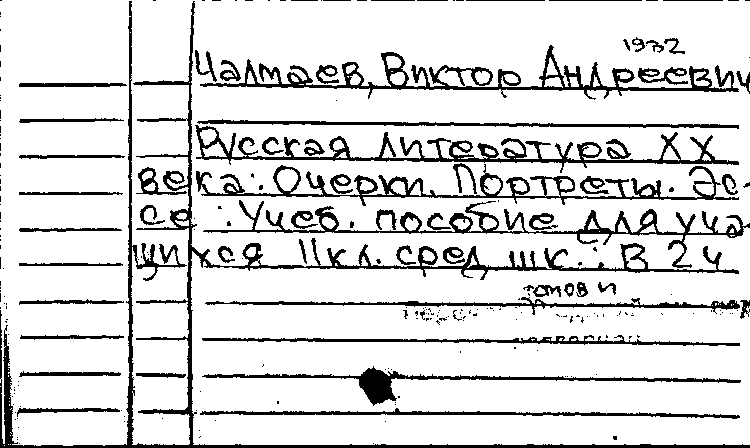 1932
Чалмаев, Виктор Андреевич
Русская литература XX
века: Очерки. Портреты. Эс-
се : Учеб. пособие для уча-
щихся 11 кл. сред. шк. : В 2 ч
томов и